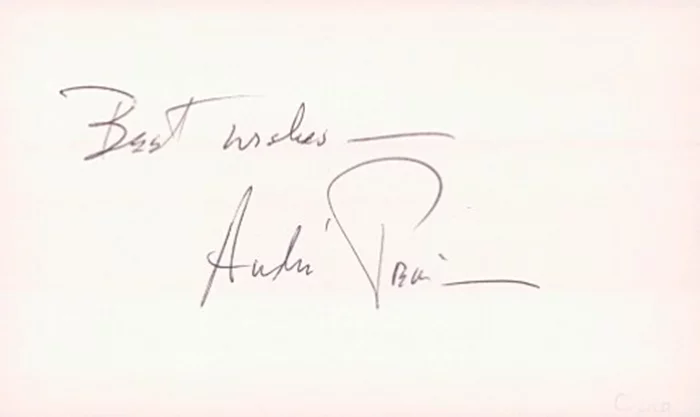 Best wishes —
André Previn